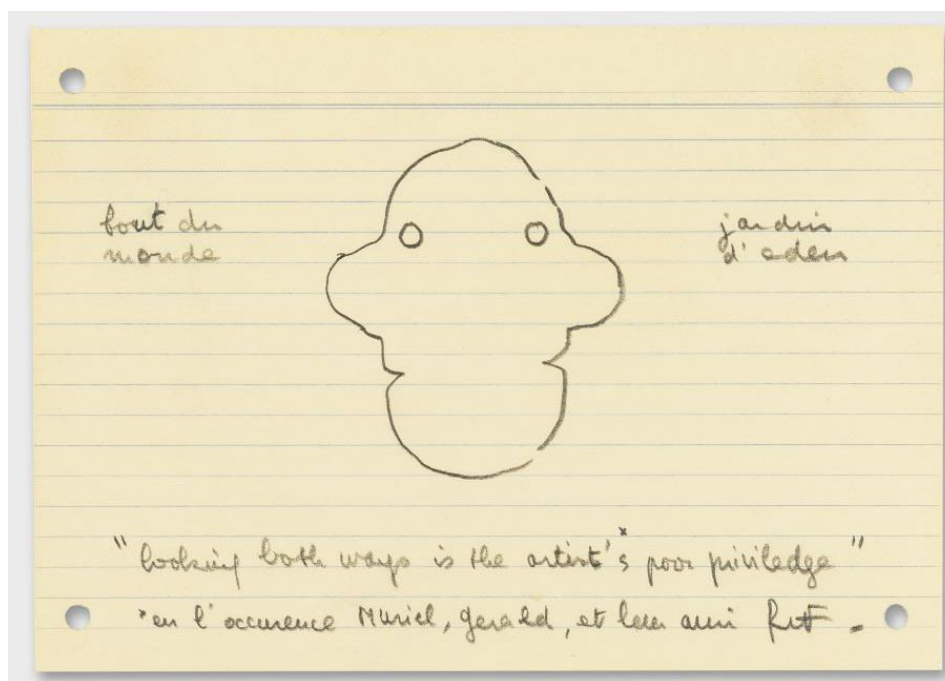 bout du
monde
jardin
d'eden
"looking both ways is the artist's* poor priviledge"
*en l'occurence Muriel, Gerald, et leur ami